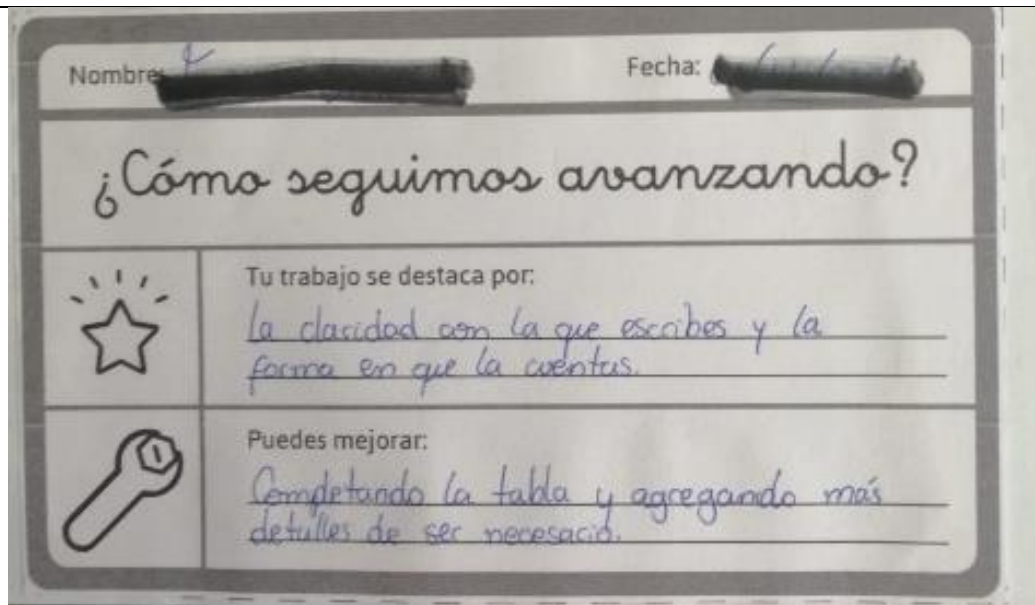 Nombre:
Fecha:
¿Cómo seguimos avanzando?
Tu trabajo se destaca por:
La claridad con la que escribes y la
forma en que la cuentas.
Puedes mejorar:
Completando la tabla y agregando más
detalles de ser necesario.